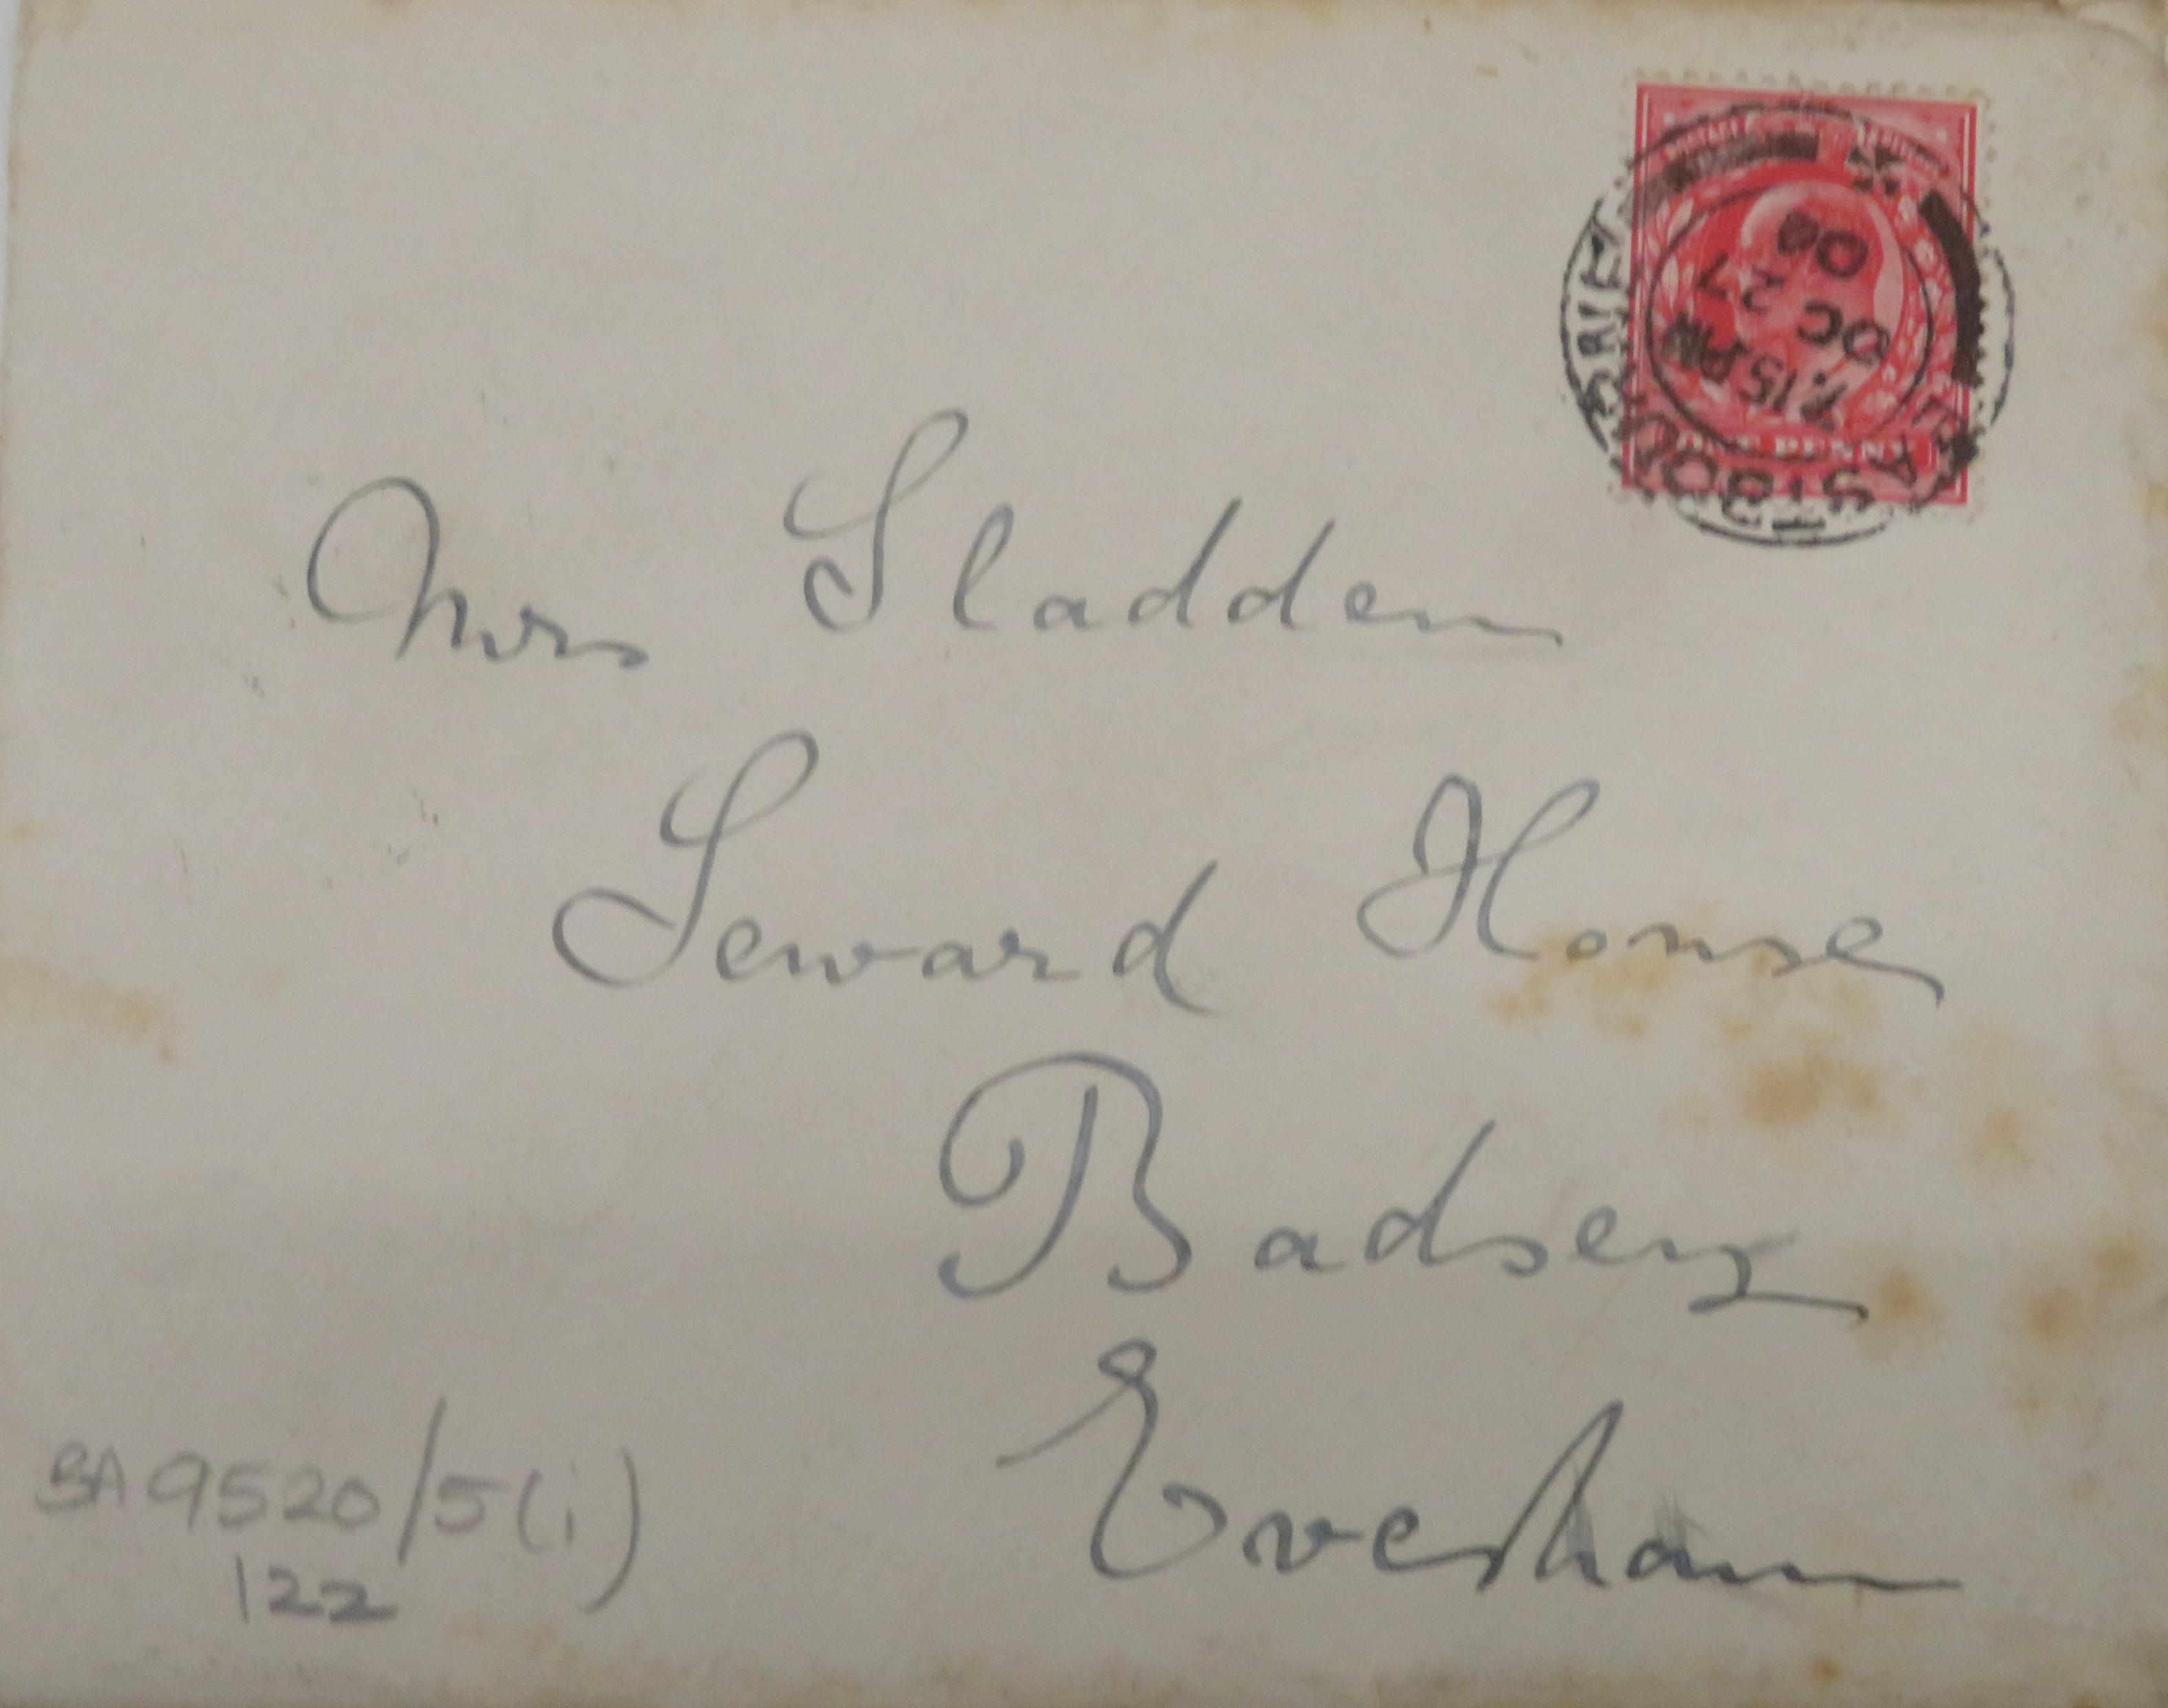 EASTBOURNE
7.15 PM
OC 27
ONE PENNY
Mrs Sladden
Seward House
Badsey
Evesham
BA 9520/5(i)
122